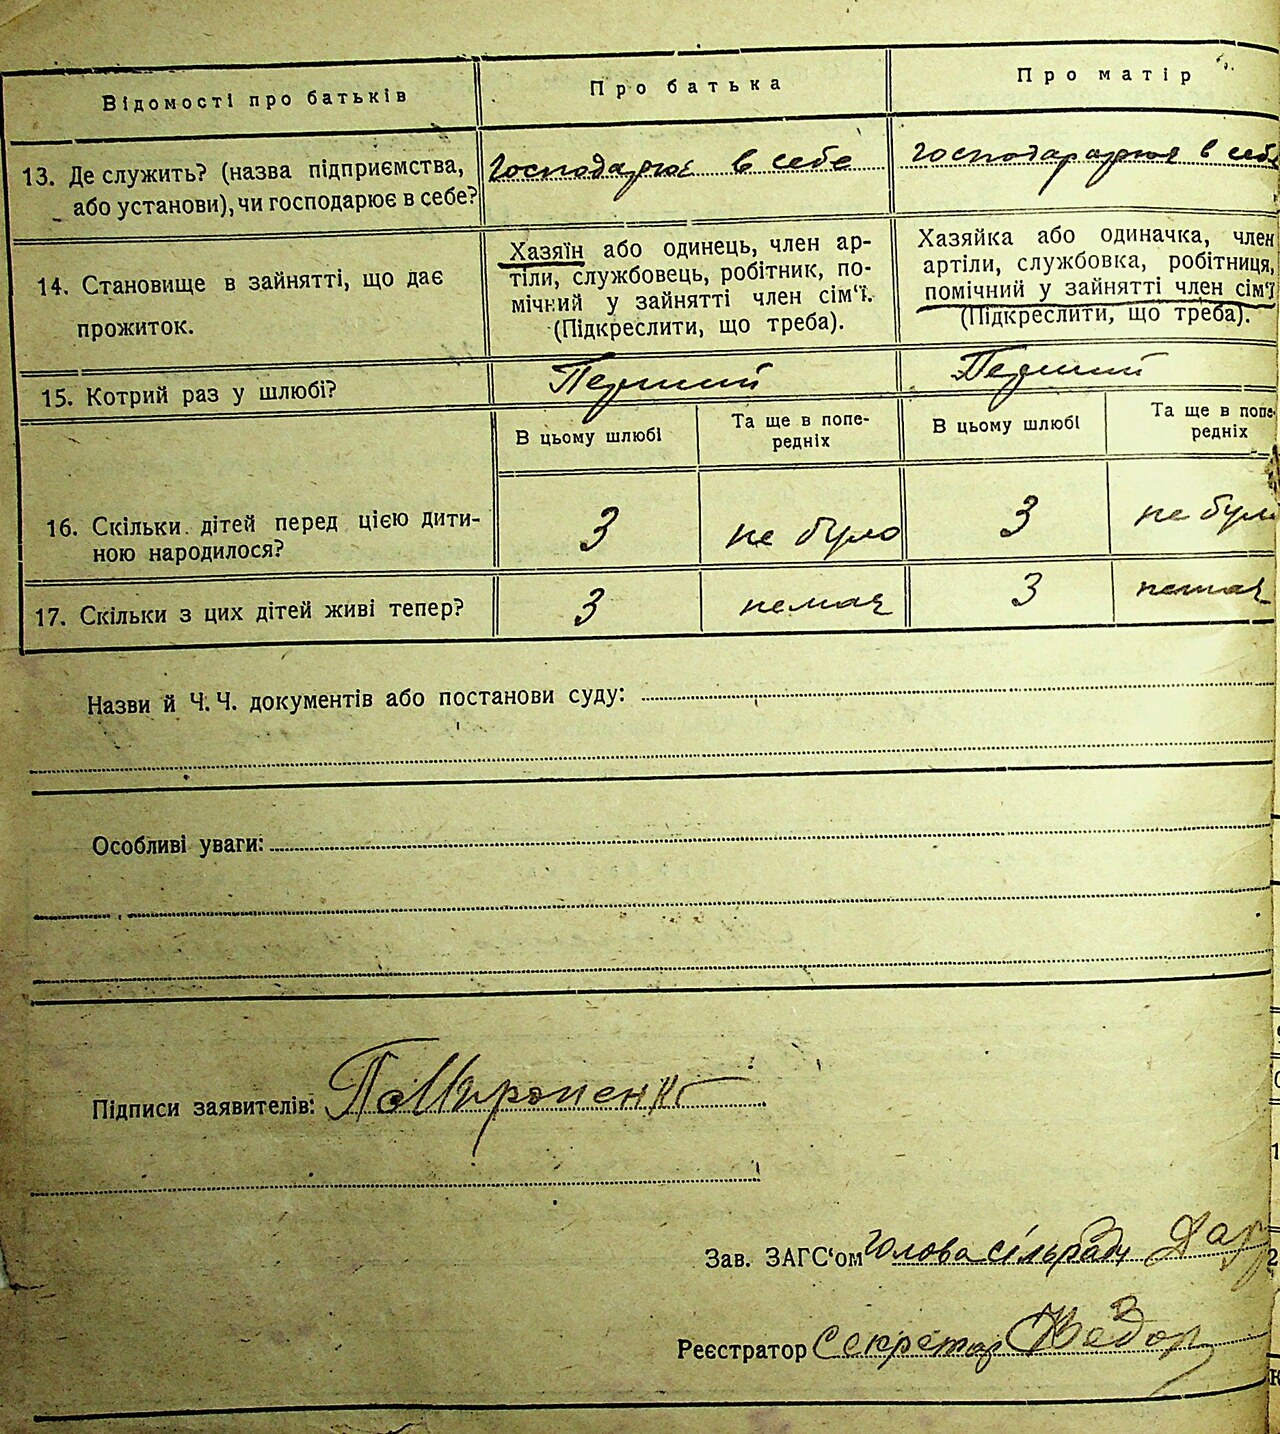 Відомості про батьків
Про батька
Про матір
13. Де служить? (назва підприємства,
або установи), чи господарює в себе?
господарює в себе
господарарює в себе
14. Становище в зайнятті, що дає
прожиток.
Хазяїн або одинець, член ар-
тіли, службовець, робітник, по-
мічний у зайнятті член сім'ї.
(Підкреслити, що треба).
Хазяйка або одиначка, член
артіли, службовка, робітниця,
помічний у зайнятті член сім'ї
(Підкреслити, що треба).
15. Котрий раз у шлюбі?
Перший
Перший
В цьому шлюбі
Та ще в попе-
редніх
В цьому шлюбі
Та ще в попе-
редніх
16. Скільки дітей перед цією дити-
ною народилося?
3
не було
3
не було
17. Скільки з цих дітей живі тепер?
3
немає
3
немає
Назви й Ч. Ч. документів або постанови суду:
Особливі уваги:
Підписи заявителів:
Зав. ЗАГС'ом Голова сільради
Реєстратор Секретар